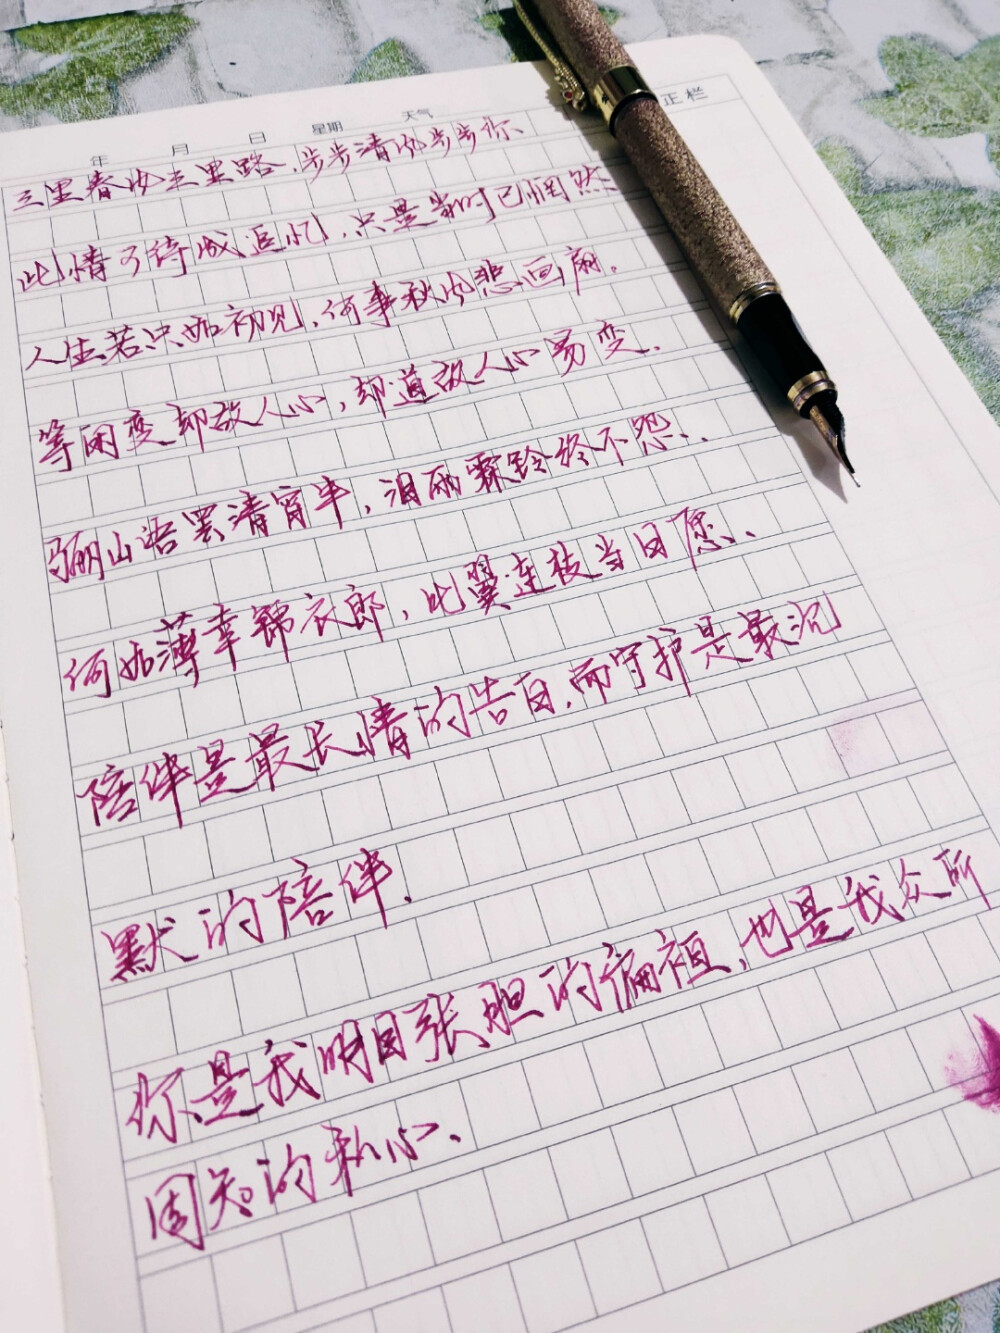 年 月 日 星期 天气 正栏
三里春风三里路，步步清风步步你.
此情可待成追忆，只是当时已惘然.
人生若只如初见，何事秋风悲画扇.
等闲变却故人心，却道故人心易变.
骊山语罢清宵半，泪雨霖铃终不怨.
何如薄幸锦衣郎，比翼连枝当日愿.
陪伴是最长情的告白，而守护是最沉
默的陪伴.
你是我明目张胆的偏袒，也是我众所
周知的私心.